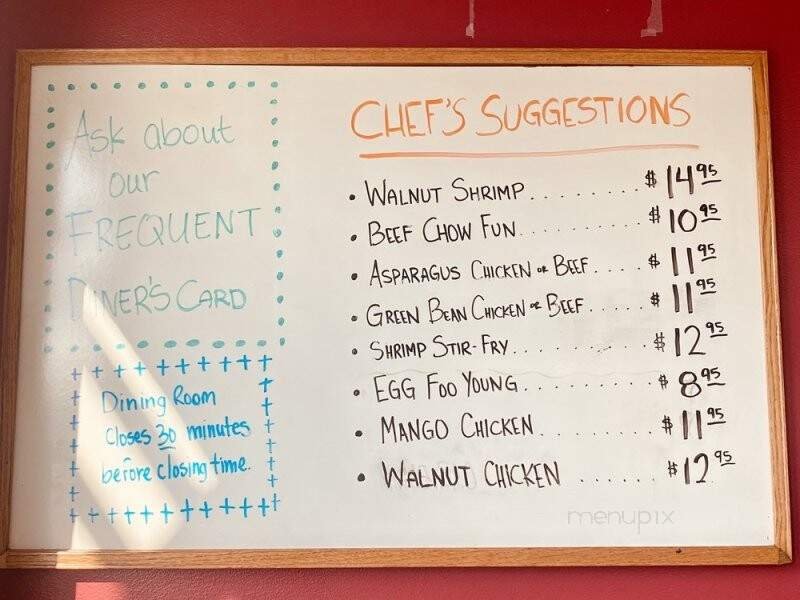 Ask about
our
FREQUENT
DINER'S CARD
Dining Room
closes 30 minutes
before closing time.
CHEF'S SUGGESTIONS
• WALNUT SHRIMP.......... $14.95
• BEEF CHOW FUN.......... $10.95
• ASPARAGUS CHICKEN OR BEEF.... $11.95
• GREEN BEAN CHICKEN OR BEEF..... $11.95
• SHRIMP STIR-FRY............ $12.95
• EGG FOO YOUNG.......... $8.95
• MANGO CHICKEN......... $11.95
• WALNUT CHICKEN ...... $12.95
menupix